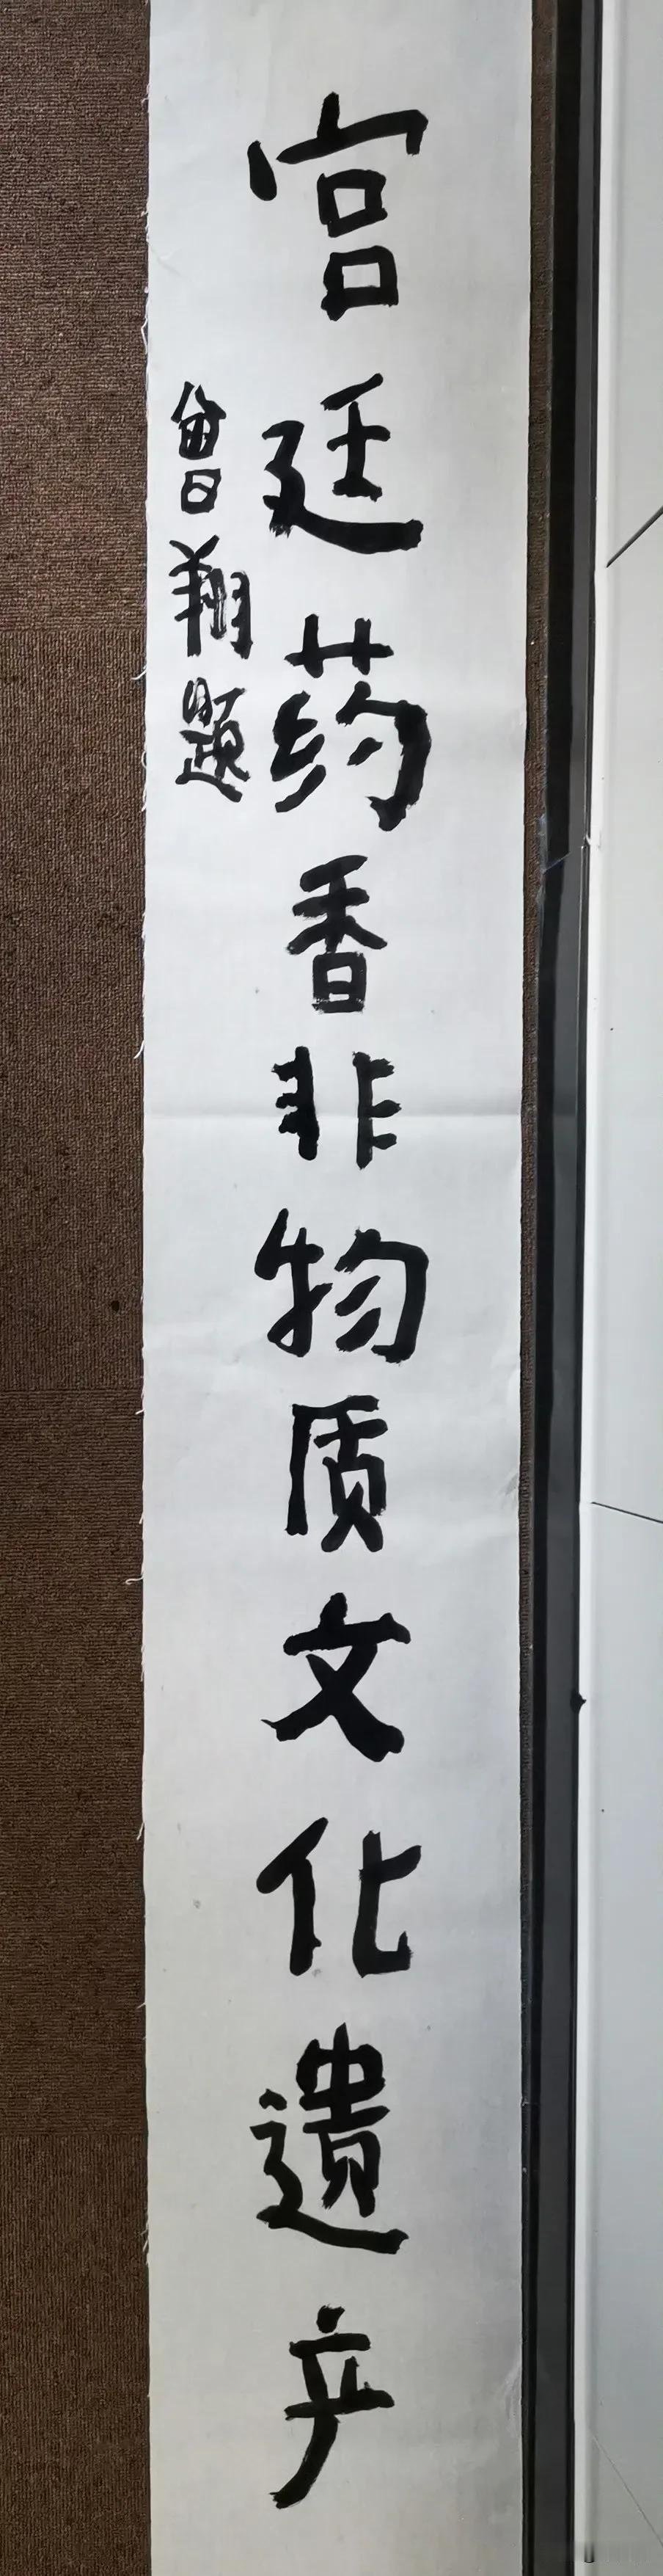 宫廷药香非物质文化遗产
曾翔题